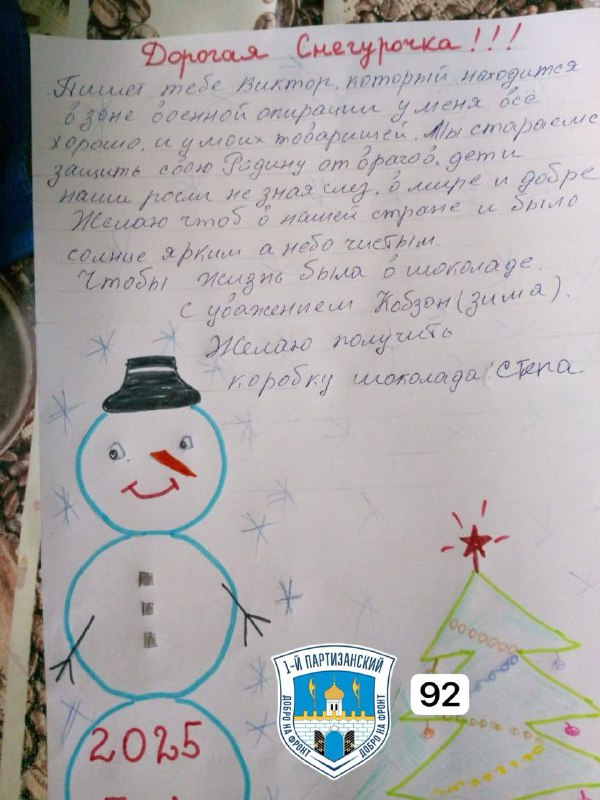 Дорогая Снегурочка!!!
Пишет тебе Виктор, который находится
в зоне военной опирации у меня всё
хорошо, и у моих товарищей. Мы стараемс
защить свою Радину от врагов, дети
наши росли не зная слез, в мире и добре
Желаю чтоб в нашей стране и было
солнце ярким а небо чистым.
Чтобы жизнь была в шоколаде.
С уважением Кобзон (зима).
Желаю получить
коробку шоколада
2025
1-Й ПАРТИЗАНСКИЙ
ДОБРО НА ФРОНТ
ДОБРО НА ФРОНТ
92